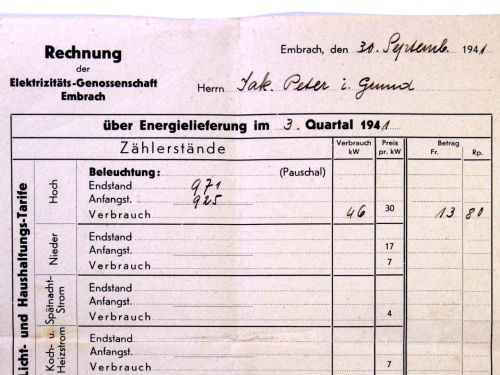 Rechnung
der
Elektrizitäts-Genossenschaft
Embrach
Embrach, den 30. Septemb. 1941
Herrn Jak. Peter i. Grund
über Energielieferung im 3. Quartal 1941
Zählerstände
Verbrauch kW
Preis pr. kW
Betrag
Fr. Rp.
Licht- und Haushaltungs-Tarife
Hoch
Beleuchtung: (Pauschal)
Endstand 971
Anfangst. 925
Verbrauch 46 30 13 80
Nieder
Endstand
Anfangst. 17
Verbrauch 7
Spätnacht-Strom
Endstand
Anfangst.
Verbrauch 4
Koch- u. Heizstrom
Endstand
Anfangst.
Verbrauch 7